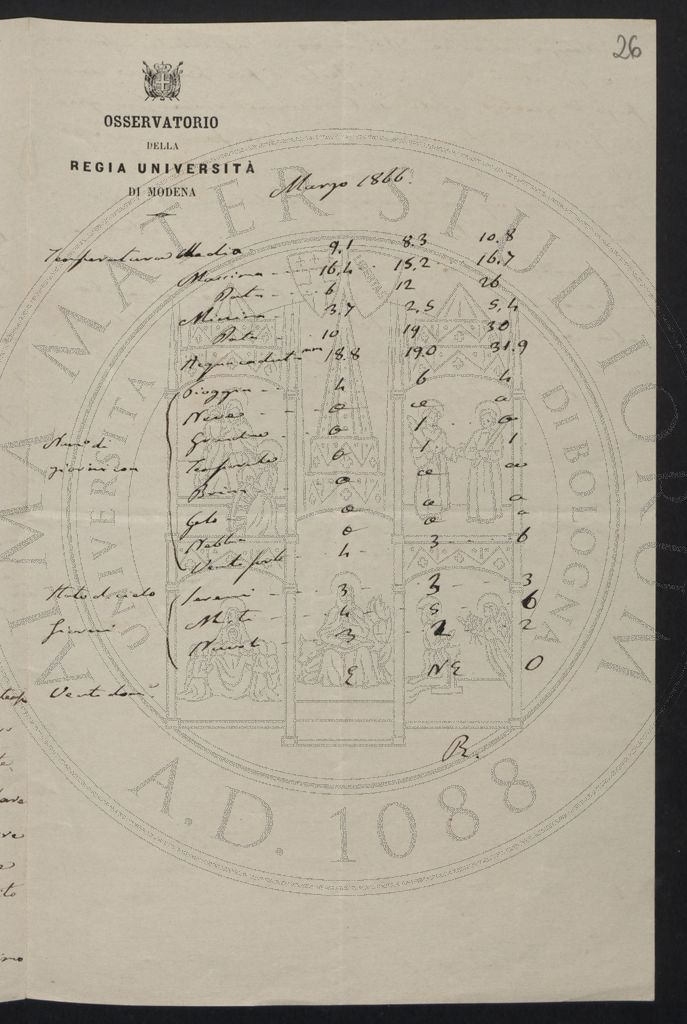 26
OSSERVATORIO
DELLA
REGIA UNIVERSITÀ
DI MODENA
Marzo 1866.
Temperatura Media 9,1 8.3 10.8
Massima 16,4 15,2 16,7
Data 6 12 26
Minima 3,7 2,5 5,4
Data 10 19 30
Acqua caduta mm 18.8 19.0 31.9
Pioggia 4 6 4
Neve 0 0 0
Num. di Grandine 0 1 0
giorni con Temporale 0 1 1
Brina 0 0 0
Gelo 0 0 0
Nebbia 0 0 0
Vento forte 4 3 6
Stato del cielo Sereni 3 3 3
Giorni Misti 4 5 6
Nuvoli 3 2 2
Vento dom.e E NE O
R.
ALMA MATER STUDIORUM
UNIVERSITA DI BOLOGNA
A.D. 1088